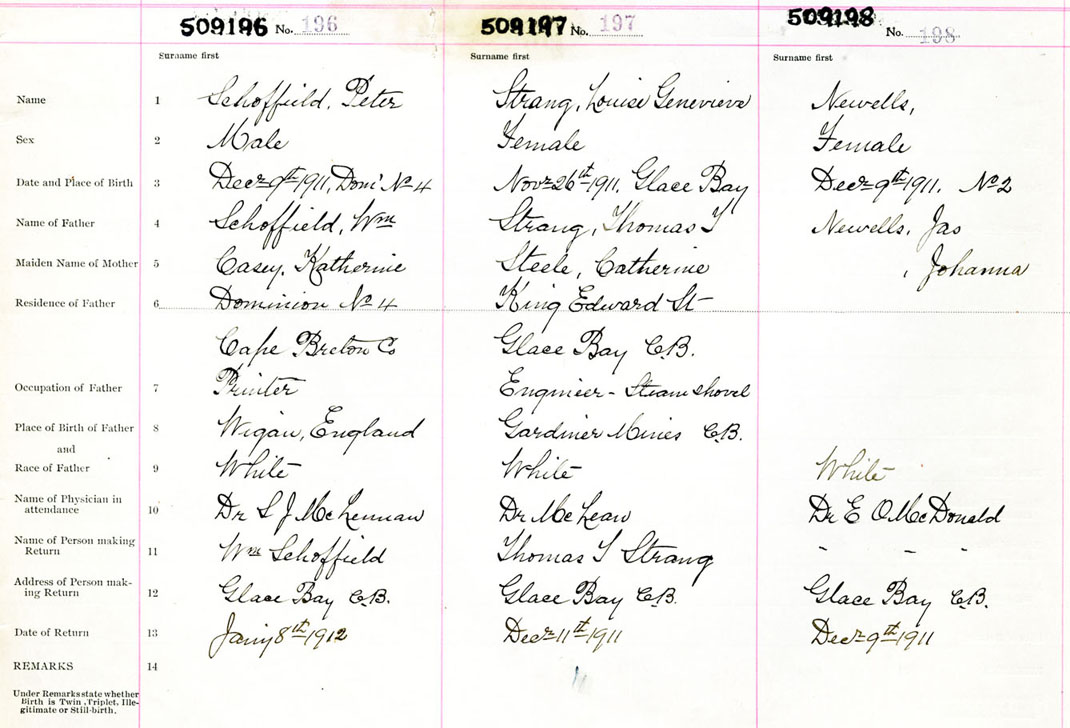 509196 No. 196 509197 No. 197 509198 No. 198
Surname first Surname first Surname first
Name 1 Schoffield, Peter Strang, Louise Genevieve Newells,
Sex 2 Male Female Female
Date and Place of Birth 3 Decr 9th 1911, Domi No 4 Novr 26th 1911, Glace Bay Decr 9th 1911, No 2
Name of Father 4 Schoffield, Wm Strang, Thomas T Newells, Jas
Maiden Name of Mother 5 Casey, Katherine Steele, Catherine , Johanna
Residence of Father 6 Dominion No 4 King Edward St
Cape Breton Co Glace Bay C.B.
Occupation of Father 7 Printer Engineer - Steam shovel
Place of Birth of Father 8 Wigan, England Gardiner Mines C.B.
and
Race of Father 9 White White White
Name of Physician in
attendance 10 Dr S J McLennan Dr McLean Dr E O McDonald
Name of Person making
Return 11 Wm Schoffield Thomas T Strang - - -
Address of Person mak-
ing Return 12 Glace Bay C.B. Glace Bay C.B. Glace Bay C.B.
Date of Return 13 Jany 8th 1912 Decr 11th 1911 Decr 9th 1911
REMARKS 14
Under Remarks state whether
Birth is Twin, Triplet, Ille-
gitimate or Still-birth.